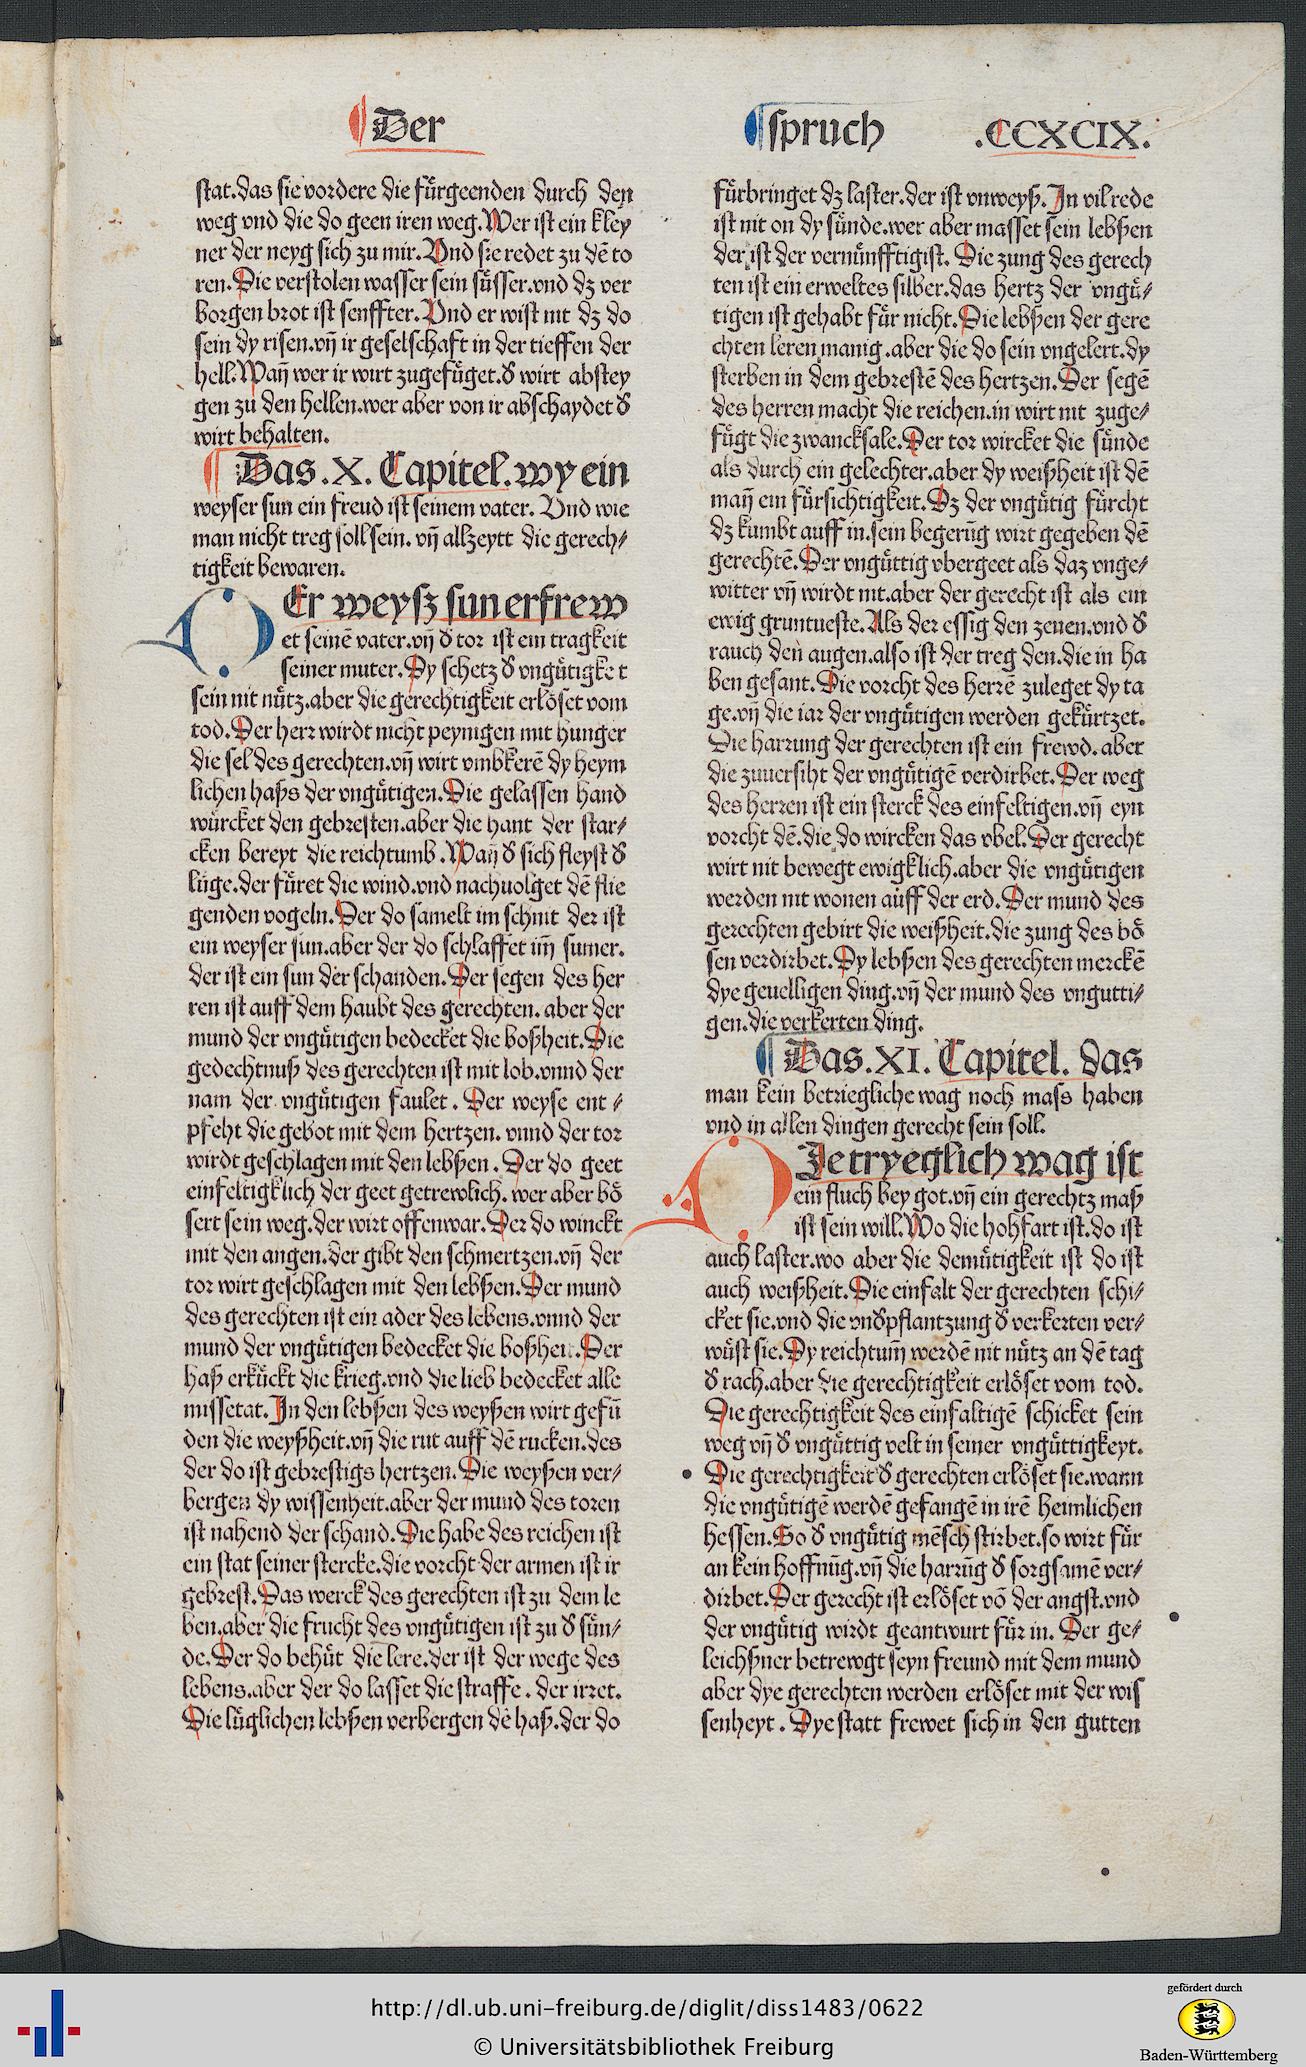 Der
spruch .CCXCIX.
stat.das sie vordere die fürgeenden durch den
weg vnd die do geen iren weg.Wer ist ein kley
ner der neyg sich zu mir.Vnd sie redet zu dē to
ren.Die verstolen wasser sein süsser.vnd dz ver
borgen brot ist senffter.Vnd er wist nit dz do
sein dy risen.vn̄ ir geselschaft in der tieffen der
hell.Wan̄ wer ir wirt zugefüget.d̕ wirt abstey
gen zu den hellen.wer aber von ir abschaydet d̕
wirt behalten.
Das.X.Capitel.wy ein
weyser sun ein freud ist seinem vater. Vnd wie
man nicht treg soll sein. vn̄ allzeytt die gerech⸗
tigkeit bewaren.
DEr weysz sun erfrew
et seinē vater.vn̄ d̕ tor ist ein tragkeit
seiner muter.Dy schetz d̕ vngütigke t
sein nit nütz.aber die gerechtigkeit erlöset vom
tod.Der herr wirdt nicht peynigen mit hunger
die sel des gerechten.vn̄ wirt vmbkerē dy heym
lichen haſs der vngütigen.Die gelassen hand
würcket den gebresten.aber die hant der star⸗
cken bereyt die reichtumb.Wan̄ d̕ sich fleyst d̕
lüge.der füret die wind.vnd nachuolget dē flie
genden vogeln.Der do samelt im schnit der ist
ein weyser sun.aber der do schlaffet im̄ sumer.
der ist ein sun der schanden.Der segen des her
ren ist auff dem haubt des gerechten. aber der
mund der vngütigen bedecket die boßheit.Die
gedechtnuß des gerechten ist mit lob.vnnd der
nam der vngütigen faulet. Der weyse ent⸗
pfeht die gebot mit dem hertzen. vnnd der tor
wirdt geschlagen mit den lebßen. Der do geet
einfeltigklich der geet getrewlich. wer aber bö
sert sein weg.der wirt offenwar.Der do winckt
mit den augen.der gibt den schmertzen.vn̄ der
tor wirt geschlagen mit den lebßen.Der mund
des gerechten ist ein ader des lebens.vnnd der
mund der vngütigen bedecket die boßheit.Der
haß erkückt die krieg.vnd die lieb bedecket alle
missetat.In den lebßen des weyßen wirt gefū
den die weyßheit.vn̄ die rut auff dē rucken.des
der do ist gebrestigs hertzen.Die weyßen ver⸗
bergen dy wissenheit.aber der mund des toren
ist nahend der schand.Die habe des reichen ist
ein stat seiner stercke.die vorcht der armen ist ir
gebrest.Das werck des gerechten ist zu dem le
ben.aber die frucht des vngütigen ist zu d̕ sün⸗
de.Der do behüt die lere.der ist der wege des
lebens.aber der do lasset die straffe. der irret.
Die lüglichen lebßen verbergen dē haß.der do
fürbringet dz laster.der ist vnweyß.In vil rede
ist nit on dy sünde.wer aber masset sein lebßen
der ist der vernünfftigist. Die zung des gerech
ten ist ein erweltes silber.das hertz der vngü⸗
tigen ist gehabt für nicht.Die lebßen der gere
chten leren manig.aber die do sein vngelert.dy
sterben in dem gebrestē des hertzen.Der segē
des herren macht die reichen.in wirt nit zuge⸗
fügt die zwancksale.Der tor wircket die sünde
als durch ein gelechter.aber dy weißheit ist dē
man̄ ein fürsichtigkeit.Dz der vngütig fürcht
dz kumbt auff in.sein begerūg wirt gegeben dē
gerechtē.Der vngüttig vbergeet als daz vnge⸗
witter vn̄ wirdt nit.aber der gerecht ist als ein
ewig gruntueste.Als der essig den zenen.vnd d̕
rauch den augen.also ist der treg den.die in ha
ben gesant.Die vorcht des herrē zuleget dy ta
ge.vn̄ die iar der vngütigen werden gekürtzet.
Die harrung der gerechten ist ein frewd.aber
die zuuersiht der vngütigē verdirbet.Der weg
des herren ist ein sterck des einfeltigen.vn̄ eyn
vorcht dē.die do wircken das vbel.Der gerecht
wirt nit bewegt ewigklich.aber die vngütigen
werden nit wonen auff der erd.Der mund des
gerechten gebirt die weißheit.die zung des bö
sen verdirbet.Dy lebßen des gerechten merckē
dye geuelligen ding.vn̄ der mund des vngutti⸗
gen.die verkerten ding.
Das.XI.Capitel. das
man kein betriegliche wag noch mass haben
vnd in allen dingen gerecht sein soll.
DJe tryeglich wag ist
ein fluch bey got.vn̄ ein gerechtz maß
ist sein will.Wo die hohfart ist.do ist
auch laster.wo aber die demütigkeit ist do ist
auch weißheit.Die einfalt der gerechten schi⸗
cket sie.vnd die vnd̕pflantzung d̕ verkerten ver⸗
wüst sie.Dy reichtum̄ werdē nit nütz an dē tag
d̕ rach.aber die gerechtigkeit erlöset vom tod.
Die gerechtigkeit des einfaltigē schicket sein
weg vn̄ d̕ vngüttig velt in seiner vngüttigkeyt.
Die gerechtigkeit d̕ gerechten erlöset sie.wann
die vngütigē werdē gefangē in irē heimlichen
hessen.So d̕ vngütig mēsch stirbet.so wirt für
an kein hoffnūg.vn̄ die harrūg d̕ sorgsamē ver⸗
dirbet.Der gerecht ist erlöset vō der angst.vnd
der vngütig wirdt geantwurt für in. Der ge⸗
leichßner betrewgt seyn freund mit dem mund
aber dye gerechten werden erlöset mit der wis
senheyt. Dye statt frewet sich in den gutten
http://dl.ub.uni-freiburg.de/diglit/diss1483/0622
© Universitätsbibliothek Freiburg
gefördert durch
Baden-Württemberg